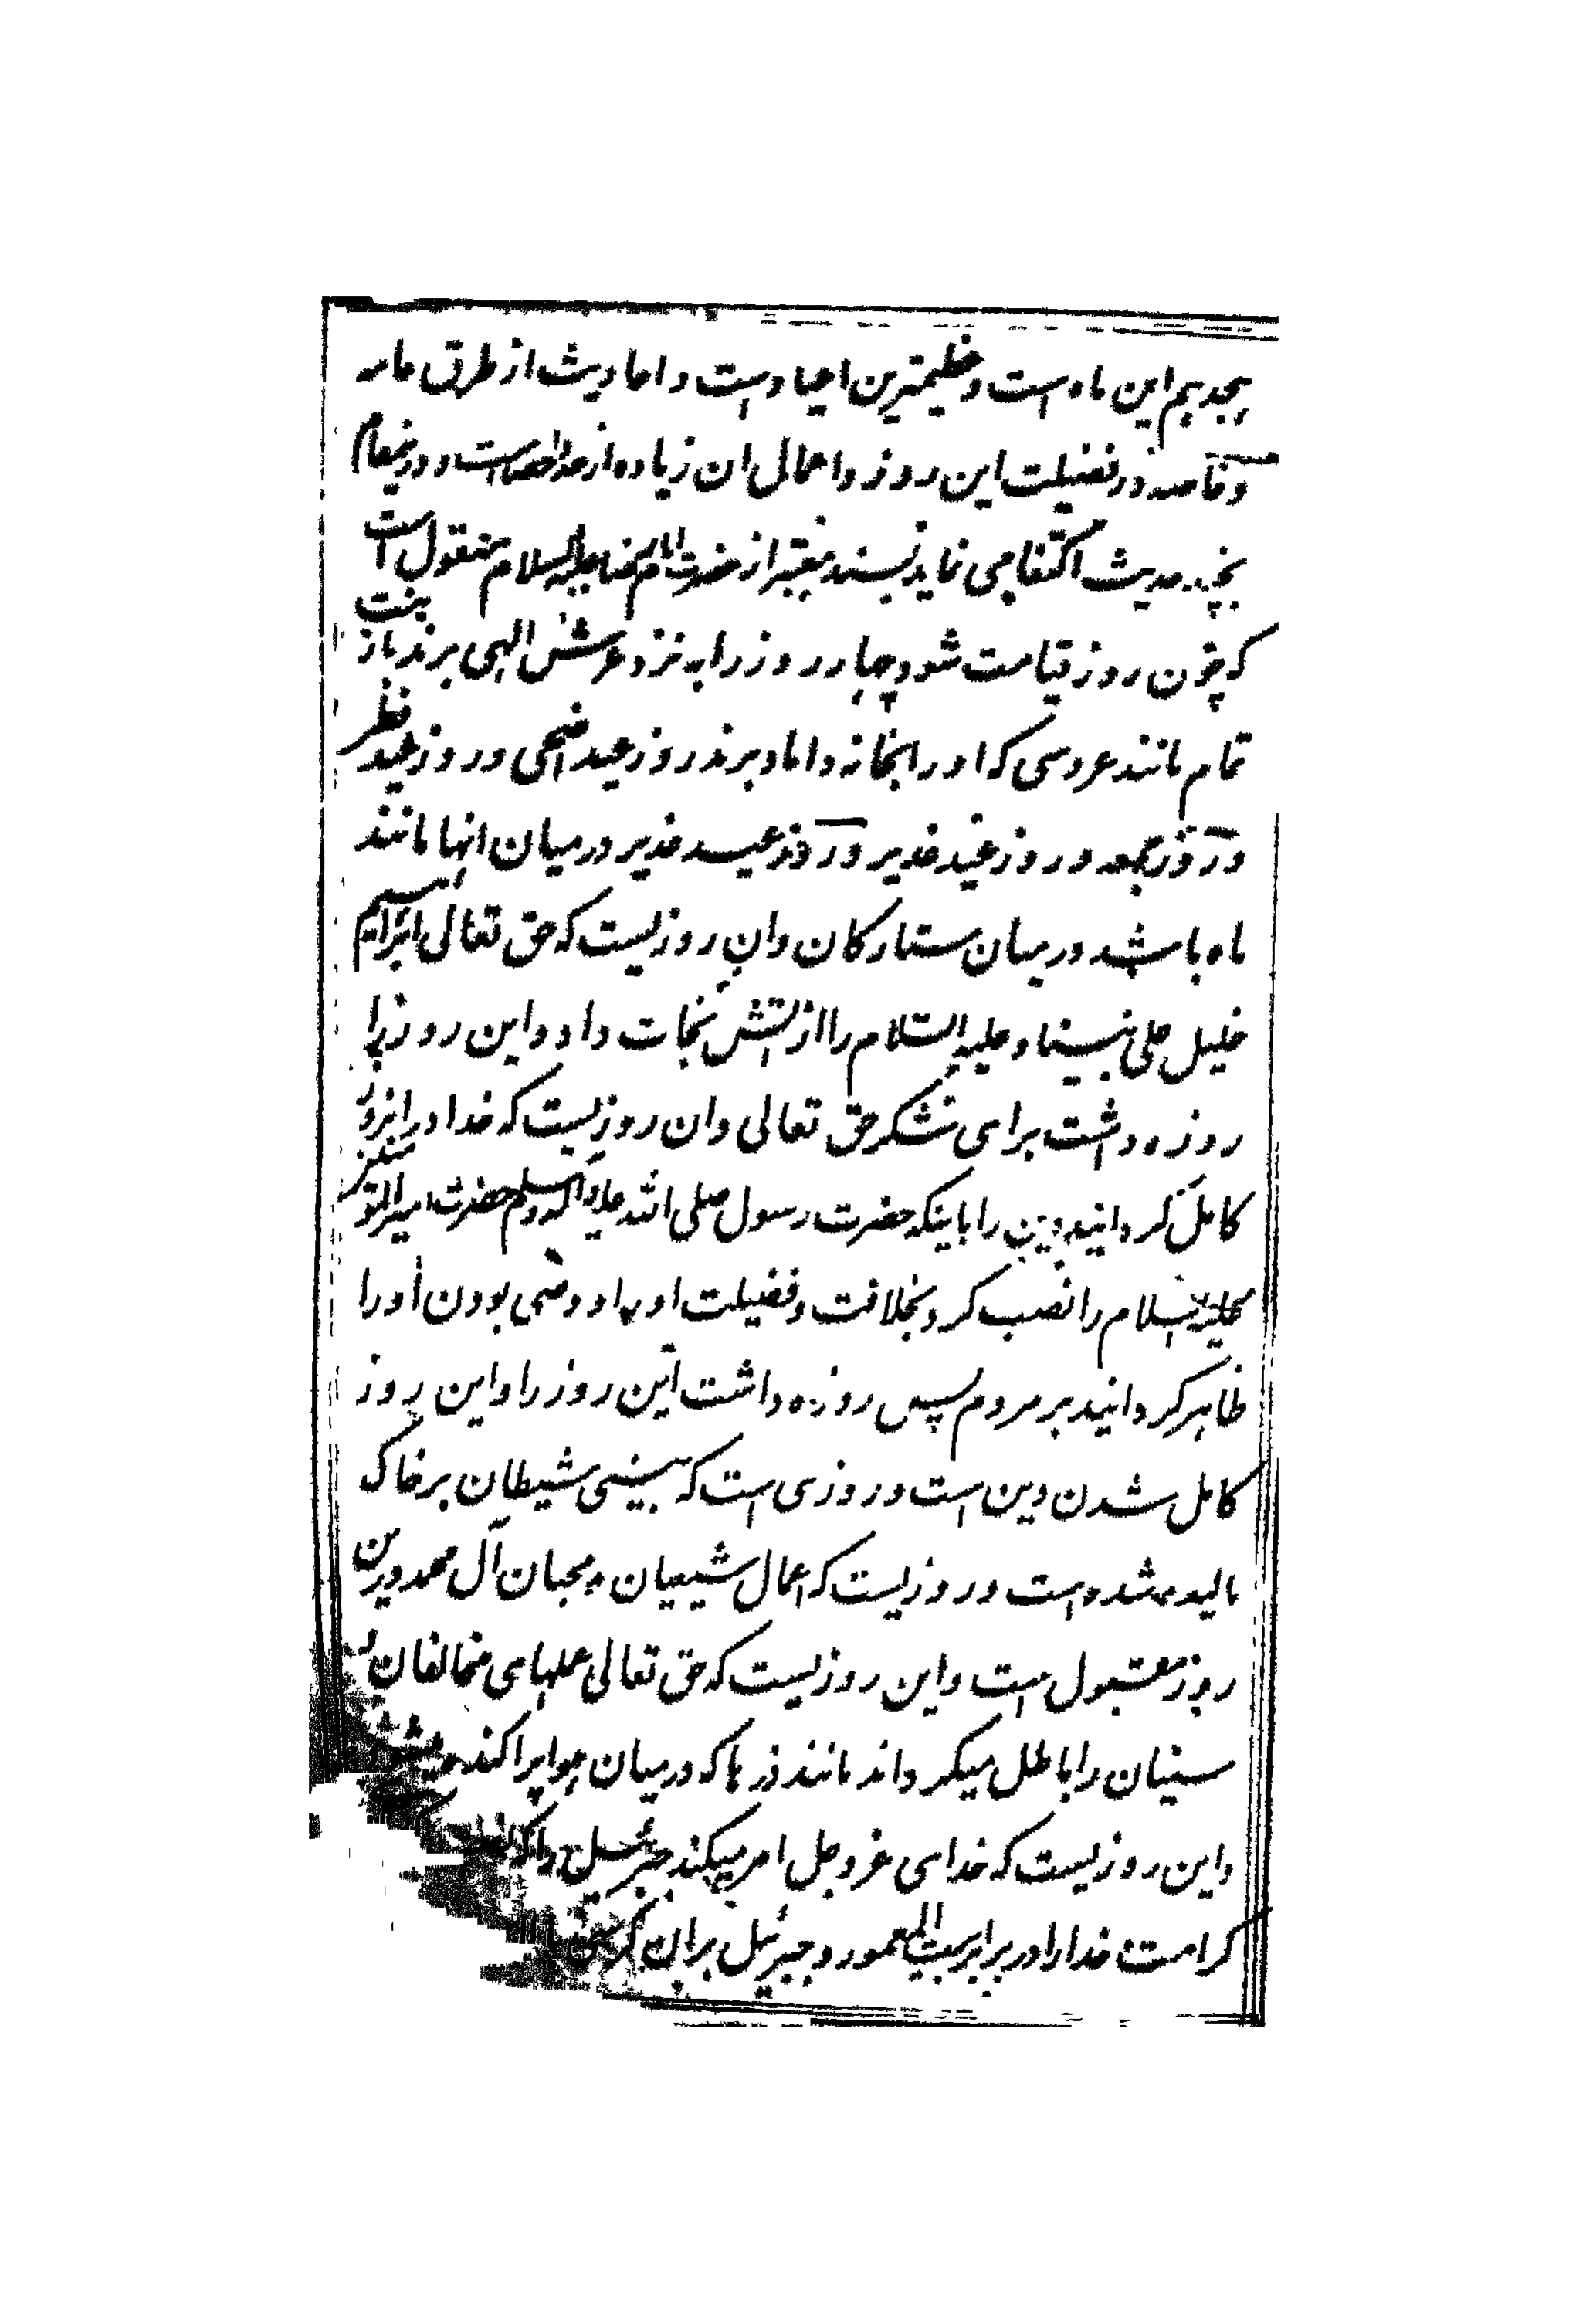 هیجدهم این ماه است و عظیمترین اعیاد است و احادیث از طرق عامه
و خاصه در فضیلت این روز و اعمال ان زیاده از حد احصاست و در اینمقام
بچند حدیث اکتفا می نماید بسند معتبر از حضرت امام رضا علیه السلام منقول است
که چون روز قیامت شود چهار روز را به نزد عرش الهی برند بازینت
تمام مانند عروسی که او را بخانه داماد برند روز عید اضحی و روز عید فطر
و روز جمعه و روز عید غدیر و روز عید غدیر در میان انها مانند
ماه باشد در میان ستارکان و ان روزیست که حق تعالی ابراهیم
خلیل علی نبینا و علیه السلام را از اتش نجات داد و این روز را
روزه داشت برای شکر حق تعالی و ان روزیست که خدا در انروز
کامل کردانید دین را باینکه حضرت رسول صلی الله علیه و اله و سلم حضرت امیرالمؤمنین
علیه السلام را نصب کرد بخلافت و فضیلت او را و وصی بودن او را
ظاهر کردانید بر مردم پس روزه داشت این روز را و این روز
کامل شدن دین است و روزی است که بینی شیطان بر خاک
مالیده شده است و روزیست که اعمال شیعیان و محبان آل محمد در این
روز مقبول است و این روزیست که حق تعالی عملهای مخالفان و
سنیان را باطل میکرداند مانند ذرها که در میان هوا پراکنده میشود
و این روزیست که خدای عز و جل امر میکند جبرئیل را که
کرامت خدا را در برابر بیت المعمور و جبرئیل بران کرسی